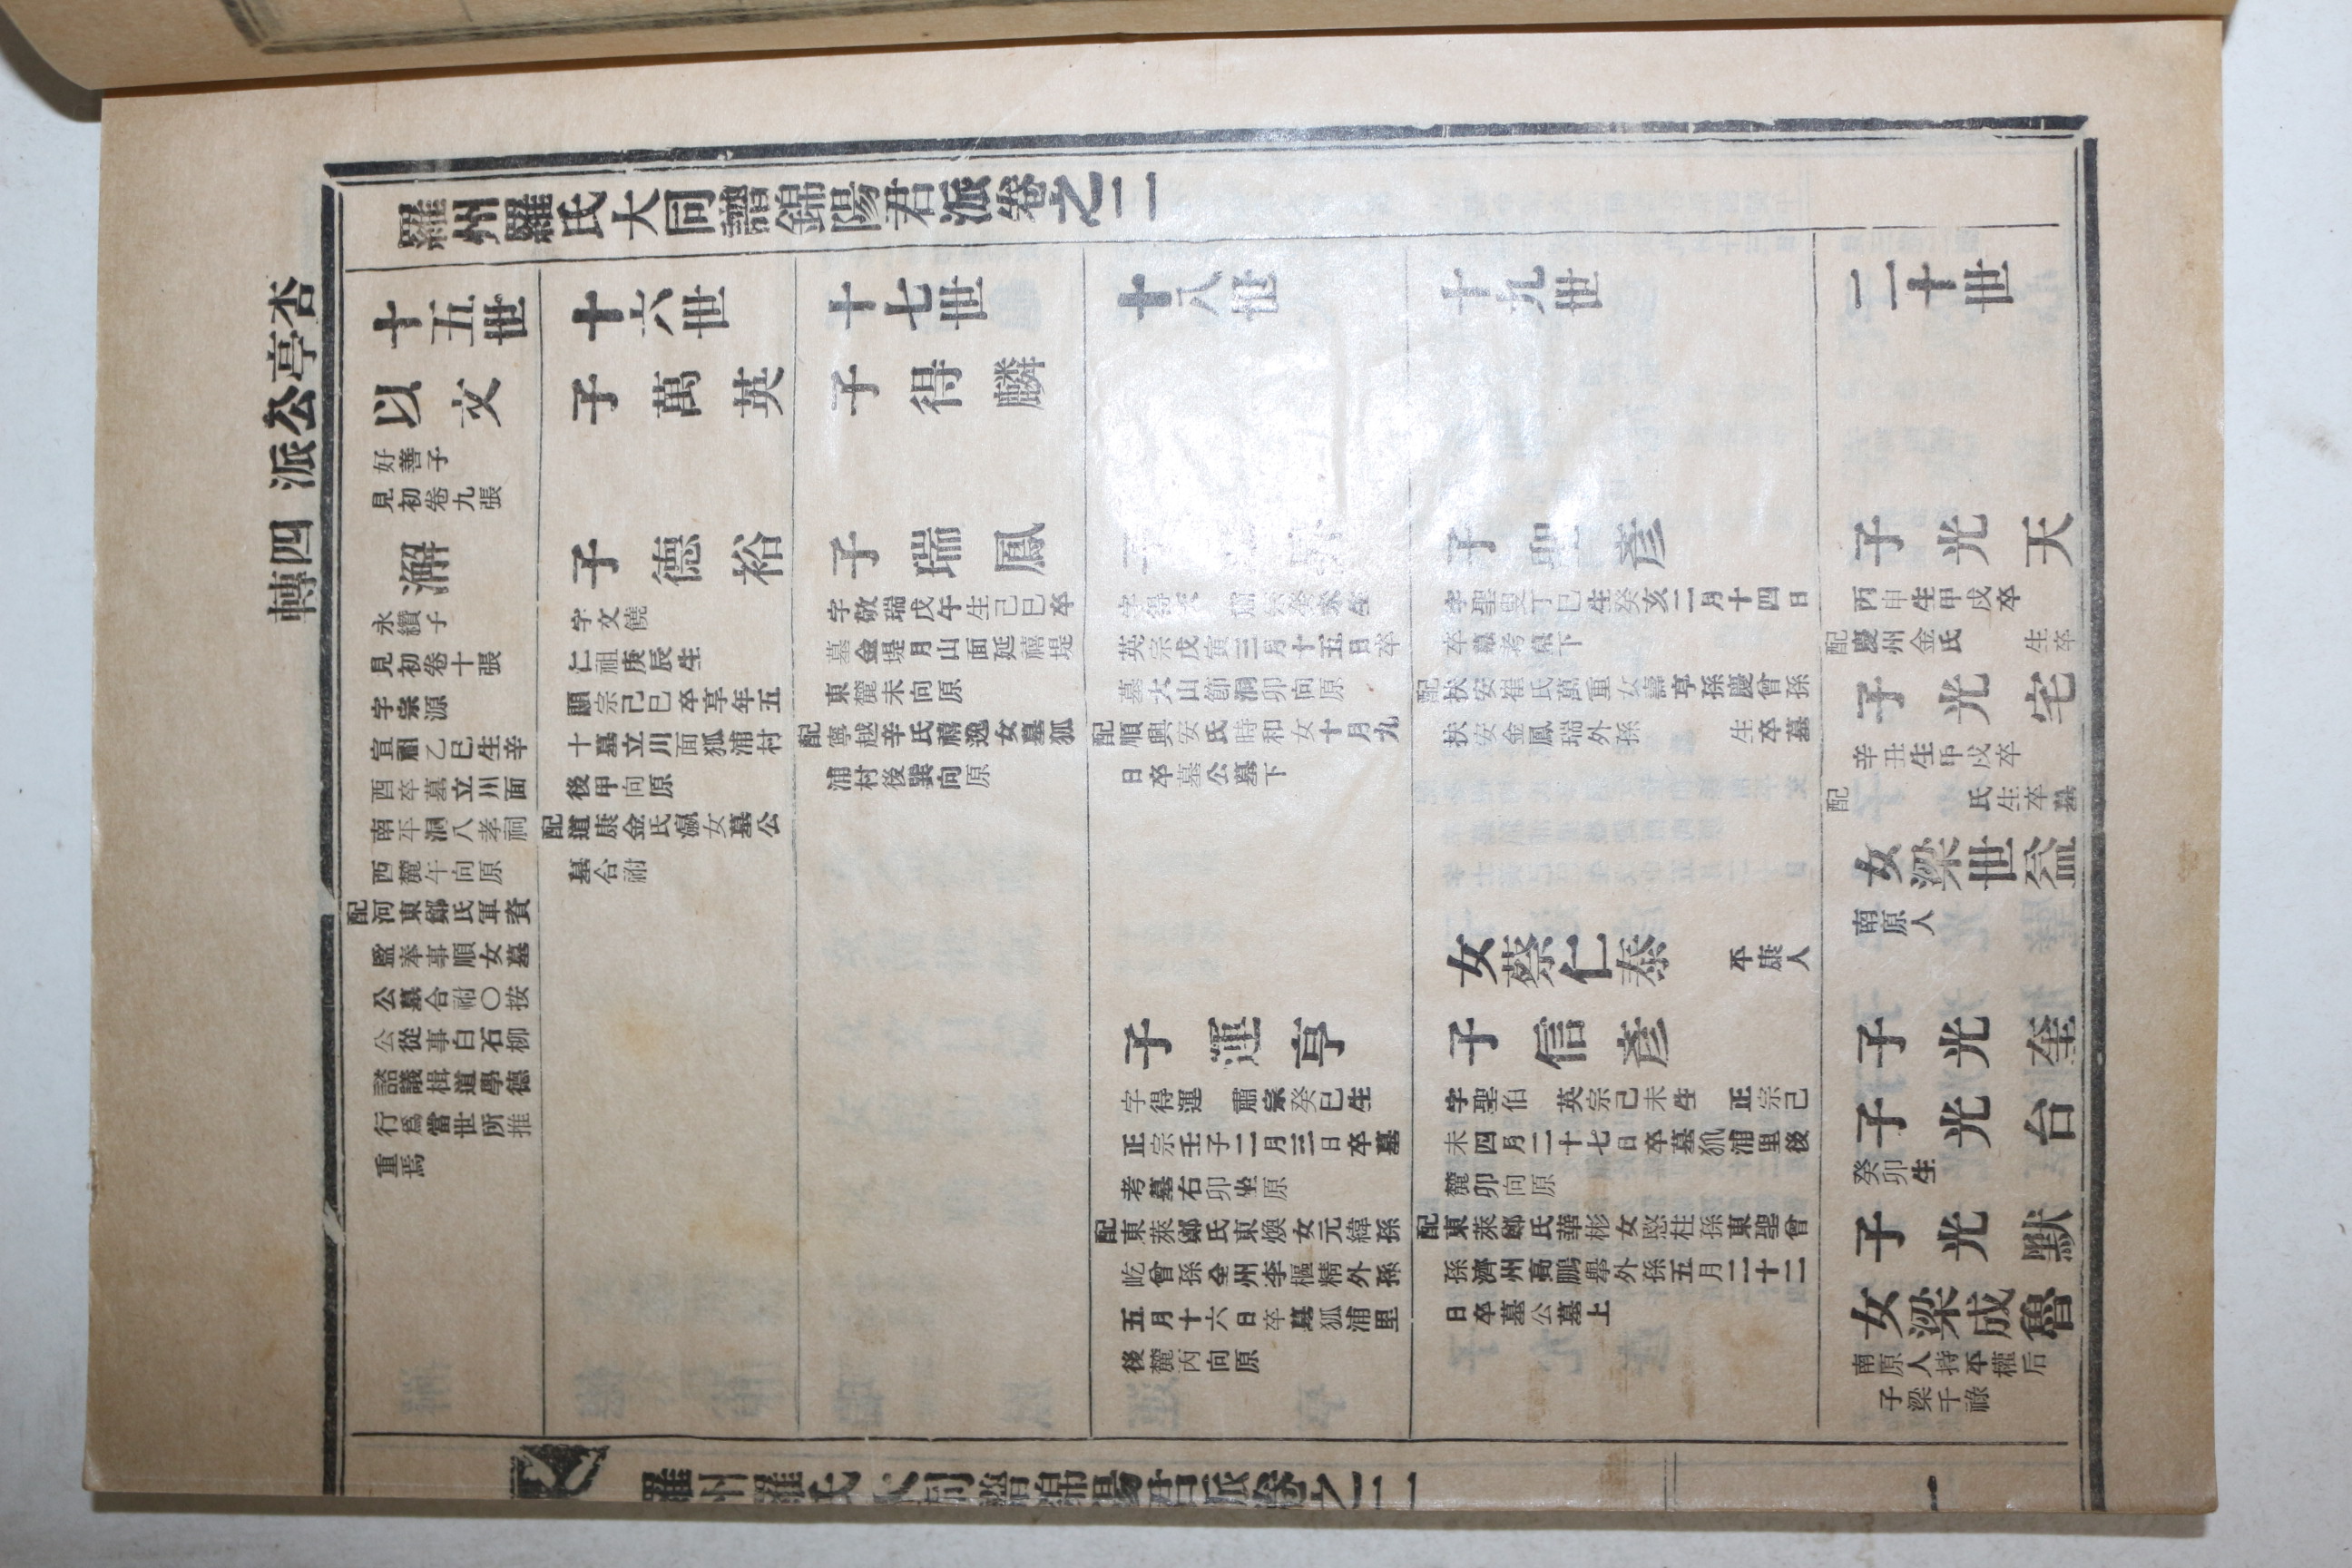 杏亭公派 四轉
羅州羅氏大同譜錦陽君派卷之二
十五世
以文
好善子
見初卷九張
澥
永纘子
見初卷十張
字宗源
宣祖乙巳生辛
酉卒墓立川面
南平洞八孝祠
西麓午向原
配河東鄭氏軍資
監奉事順女墓
公墓合祔〇按
公從事白石柳
諮議楫道學德
行爲當世所推
重焉
十六世
子萬英
子德裕
字文饒
仁祖庚辰生
顯宗己巳卒享年五
十墓立川面狐浦村
後甲向原
配道康金氏瀛女墓公
墓合祔
十七世
子得麟
子瑞鳳
字敬瑞戊午生己巳卒
墓金堤月山面延禧堤
東麓未向原
配寧越辛氏禧逸女墓狐
浦村後巽向原
十八世
英宗戊寅三月十五日卒
墓大山節洞卯向原
配順興安氏時和女十月九
日卒墓公墓下
子運亨
字得運 肅宗癸巳生
正宗壬子二月三日卒墓
考墓右卯坐原
配東萊鄭氏東煥女元緯孫
屹曾孫全州李樞精外孫
五月十六日卒墓狐浦里
後麓丙向原
十九世
子聖彥
字聖叟丁巳生癸亥二月十四日
卒墓考墓下
配扶安崔氏萬重女壽亨孫慶曾孫
扶安金鳳瑞外孫 生卒墓
女蔡仁泰 平康人
子信彥
字聖伯 英宗己未生 正宗己
未四月二十七日卒墓狐浦里後
麓卯向原
配東萊鄭氏華彬女愍柱孫東聖曾
孫濟州高鵬擧外孫五月二十二
日卒墓公墓上
二十世
子光天
丙申生甲戌卒
配慶州金氏 生卒
子光宅
辛丑生甲戌卒
配 氏生卒墓
女梁世益
南原人
子光奎
子光台
癸卯生
子光默
女梁成魯
南原人持平權后
子梁千祿
羅州羅氏大同譜錦陽君派卷之二
一